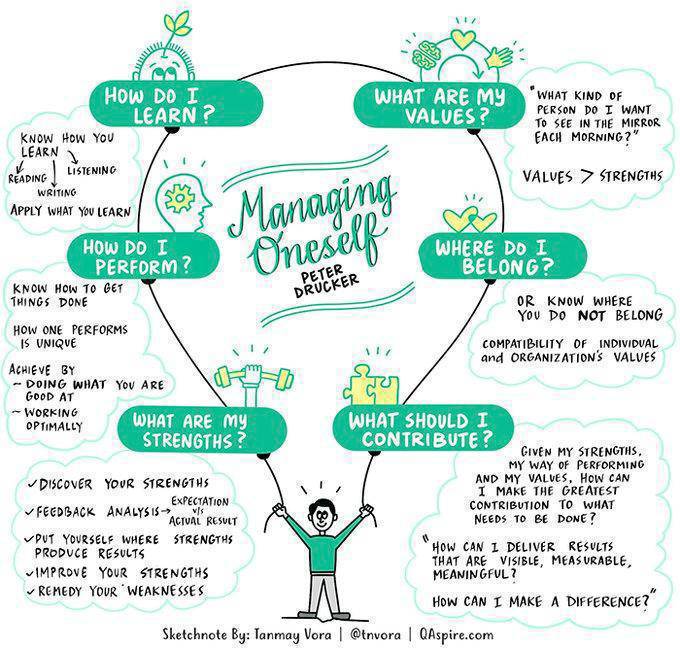 Managing
Oneself
PETER
DRUCKER
HOW DO I
LEARN?
KNOW HOW YOU
LEARN
READING
WRITING
LISTENING
APPLY WHAT YOU LEARN
HOW DO I
PERFORM?
KNOW HOW TO GET
THINGS DONE
HOW ONE PERFORMS
IS UNIQUE
ACHIEVE BY
~ DOING WHAT YOU ARE
GOOD AT
~ WORKING
OPTIMALLY
WHAT ARE MY
STRENGTHS?
✓ DISCOVER YOUR STRENGTHS
✓ FEEDBACK ANALYSIS → EXPECTATION
v/s
ACTUAL RESULT
✓ PUT YOURSELF WHERE STRENGTHS
PRODUCE RESULTS
✓ IMPROVE YOUR STRENGTHS
✓ REMEDY YOUR WEAKNESSES
WHAT ARE MY
VALUES?
"WHAT KIND OF
PERSON DO I WANT
TO SEE IN THE MIRROR
EACH MORNING?"
VALUES > STRENGTHS
WHERE DO I
BELONG?
OR KNOW WHERE
YOU DO NOT BELONG
COMPATIBILITY OF INDIVIDUAL
and ORGANIZATION'S VALUES
WHAT SHOULD I
CONTRIBUTE?
GIVEN MY STRENGTHS,
MY WAY OF PERFORMING
AND MY VALUES, HOW CAN
I MAKE THE GREATEST
CONTRIBUTION TO WHAT
NEEDS TO BE DONE?
"HOW CAN I DELIVER RESULTS
THAT ARE VISIBLE, MEASURABLE,
MEANINGFUL?
HOW CAN I MAKE A DIFFERENCE?"
Sketchnote By: Tanmay Vora | @tnvora | QAspire.com